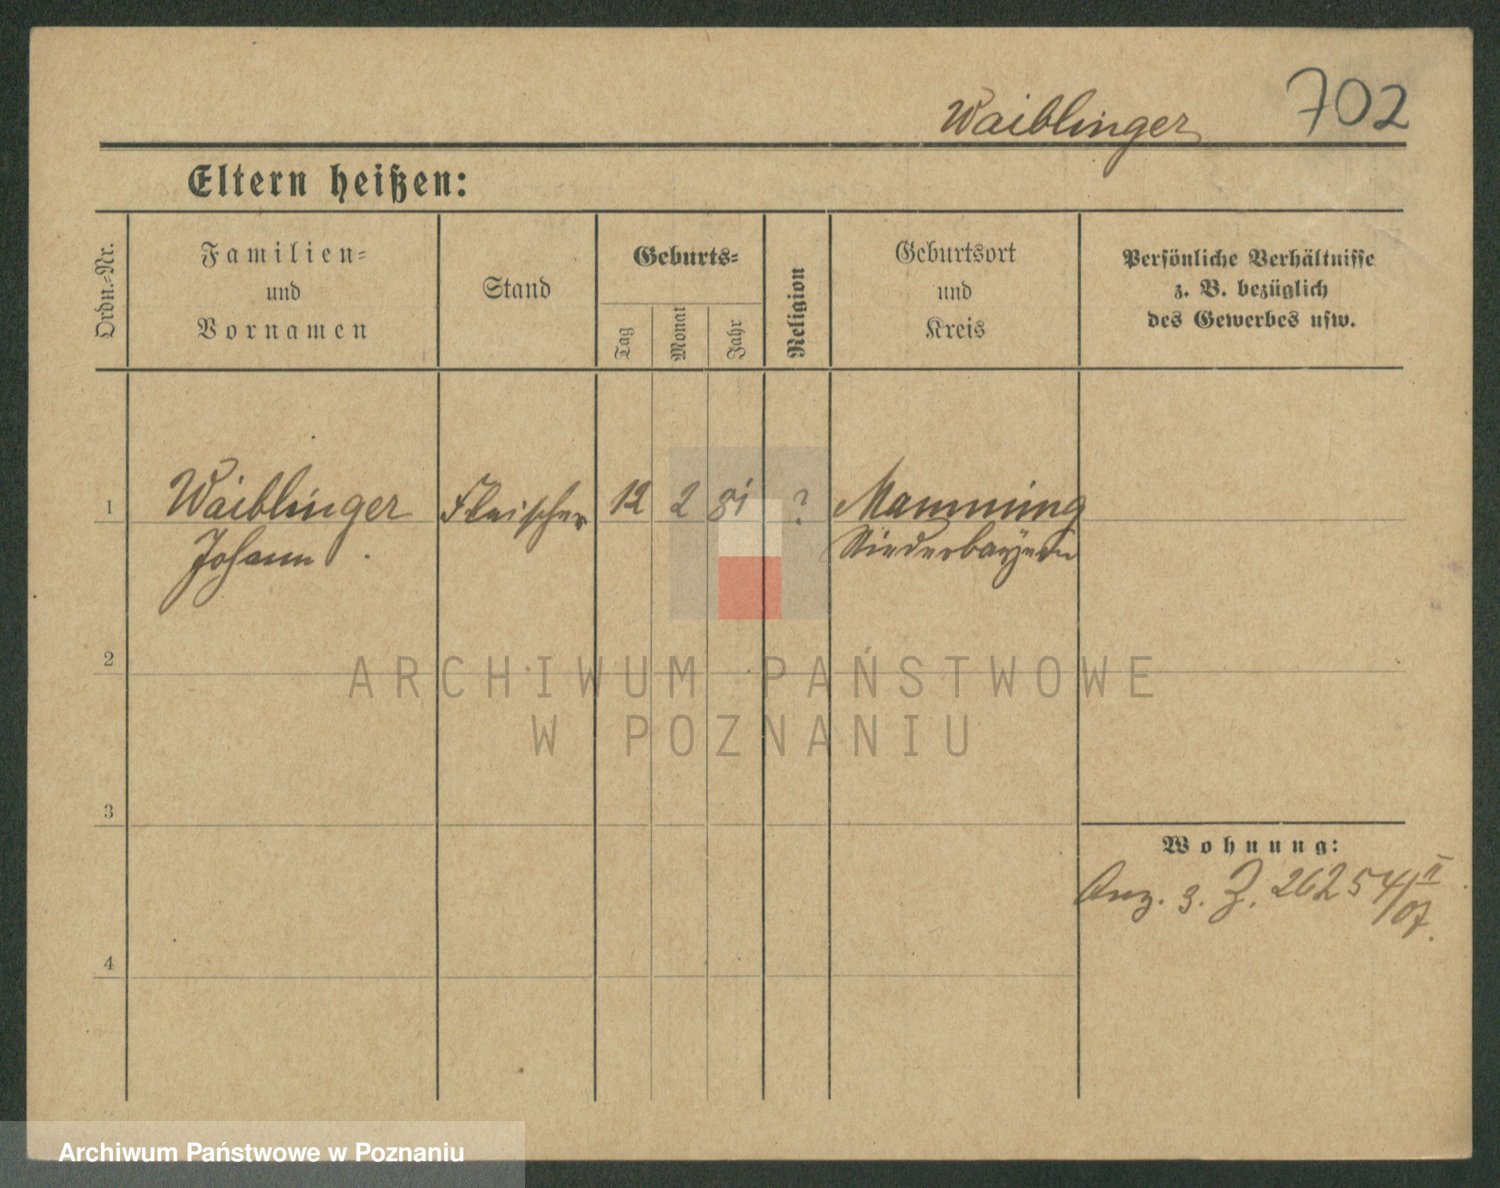 Waiblinger 702
Eltern heißen:
Ordn.-Nr.
Familien-
und
Vornamen
Stand
Geburts-
Tag
Monat
Jahr
Religion
Geburtsort
und
Kreis
Persönliche Verhältnisse
z. B. bezüglich
des Gewerbes usw.
1 Waiblinger Fleischer 12 2 81 ? Mamming
Johann Niederbayern
2
ARCHIWUM PAŃSTWOWE
W POZNANIU
3
Wohnung:
Anz. z. Z. 26254/II
07.
4
Archiwum Państwowe w Poznaniu